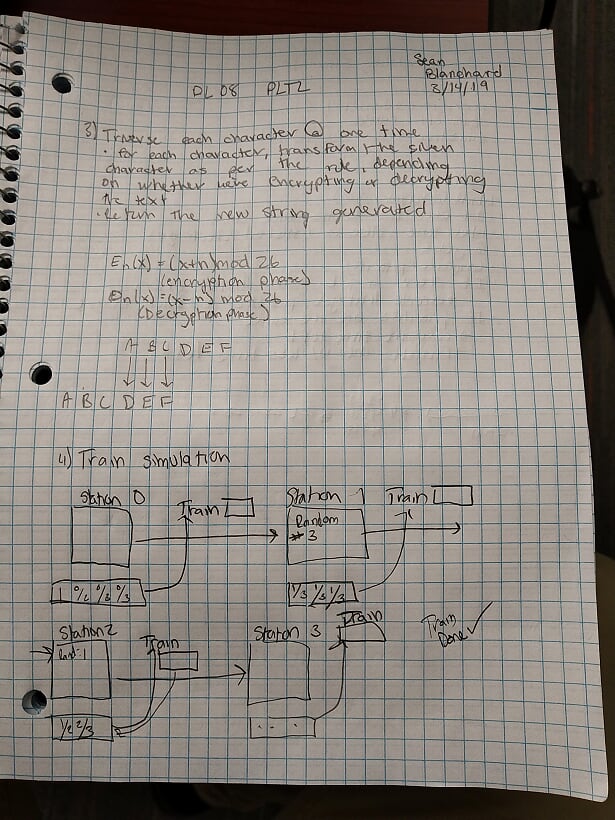 Sean
Blanchard
3/14/19
DL08 PLTL
3) Traverse each character @ one time
• for each character, transform the given
character as per the rule, depending
on whether were encrypting or decrypting
the text
• Return the new string generated
En(x) = (x+n) mod 26
(encryption phase)
Dn(x) = (x-n) mod 26
(Decryption phase)
A B C D E F
A B C D E F
4) Train simulation
Station 0 Train
Station 1 Train
Random
# 3
1/3 1/3 1/3
Station 2 Train
Rand: 1
1/2 2/3
Station 3 Train
Train
Done ✓